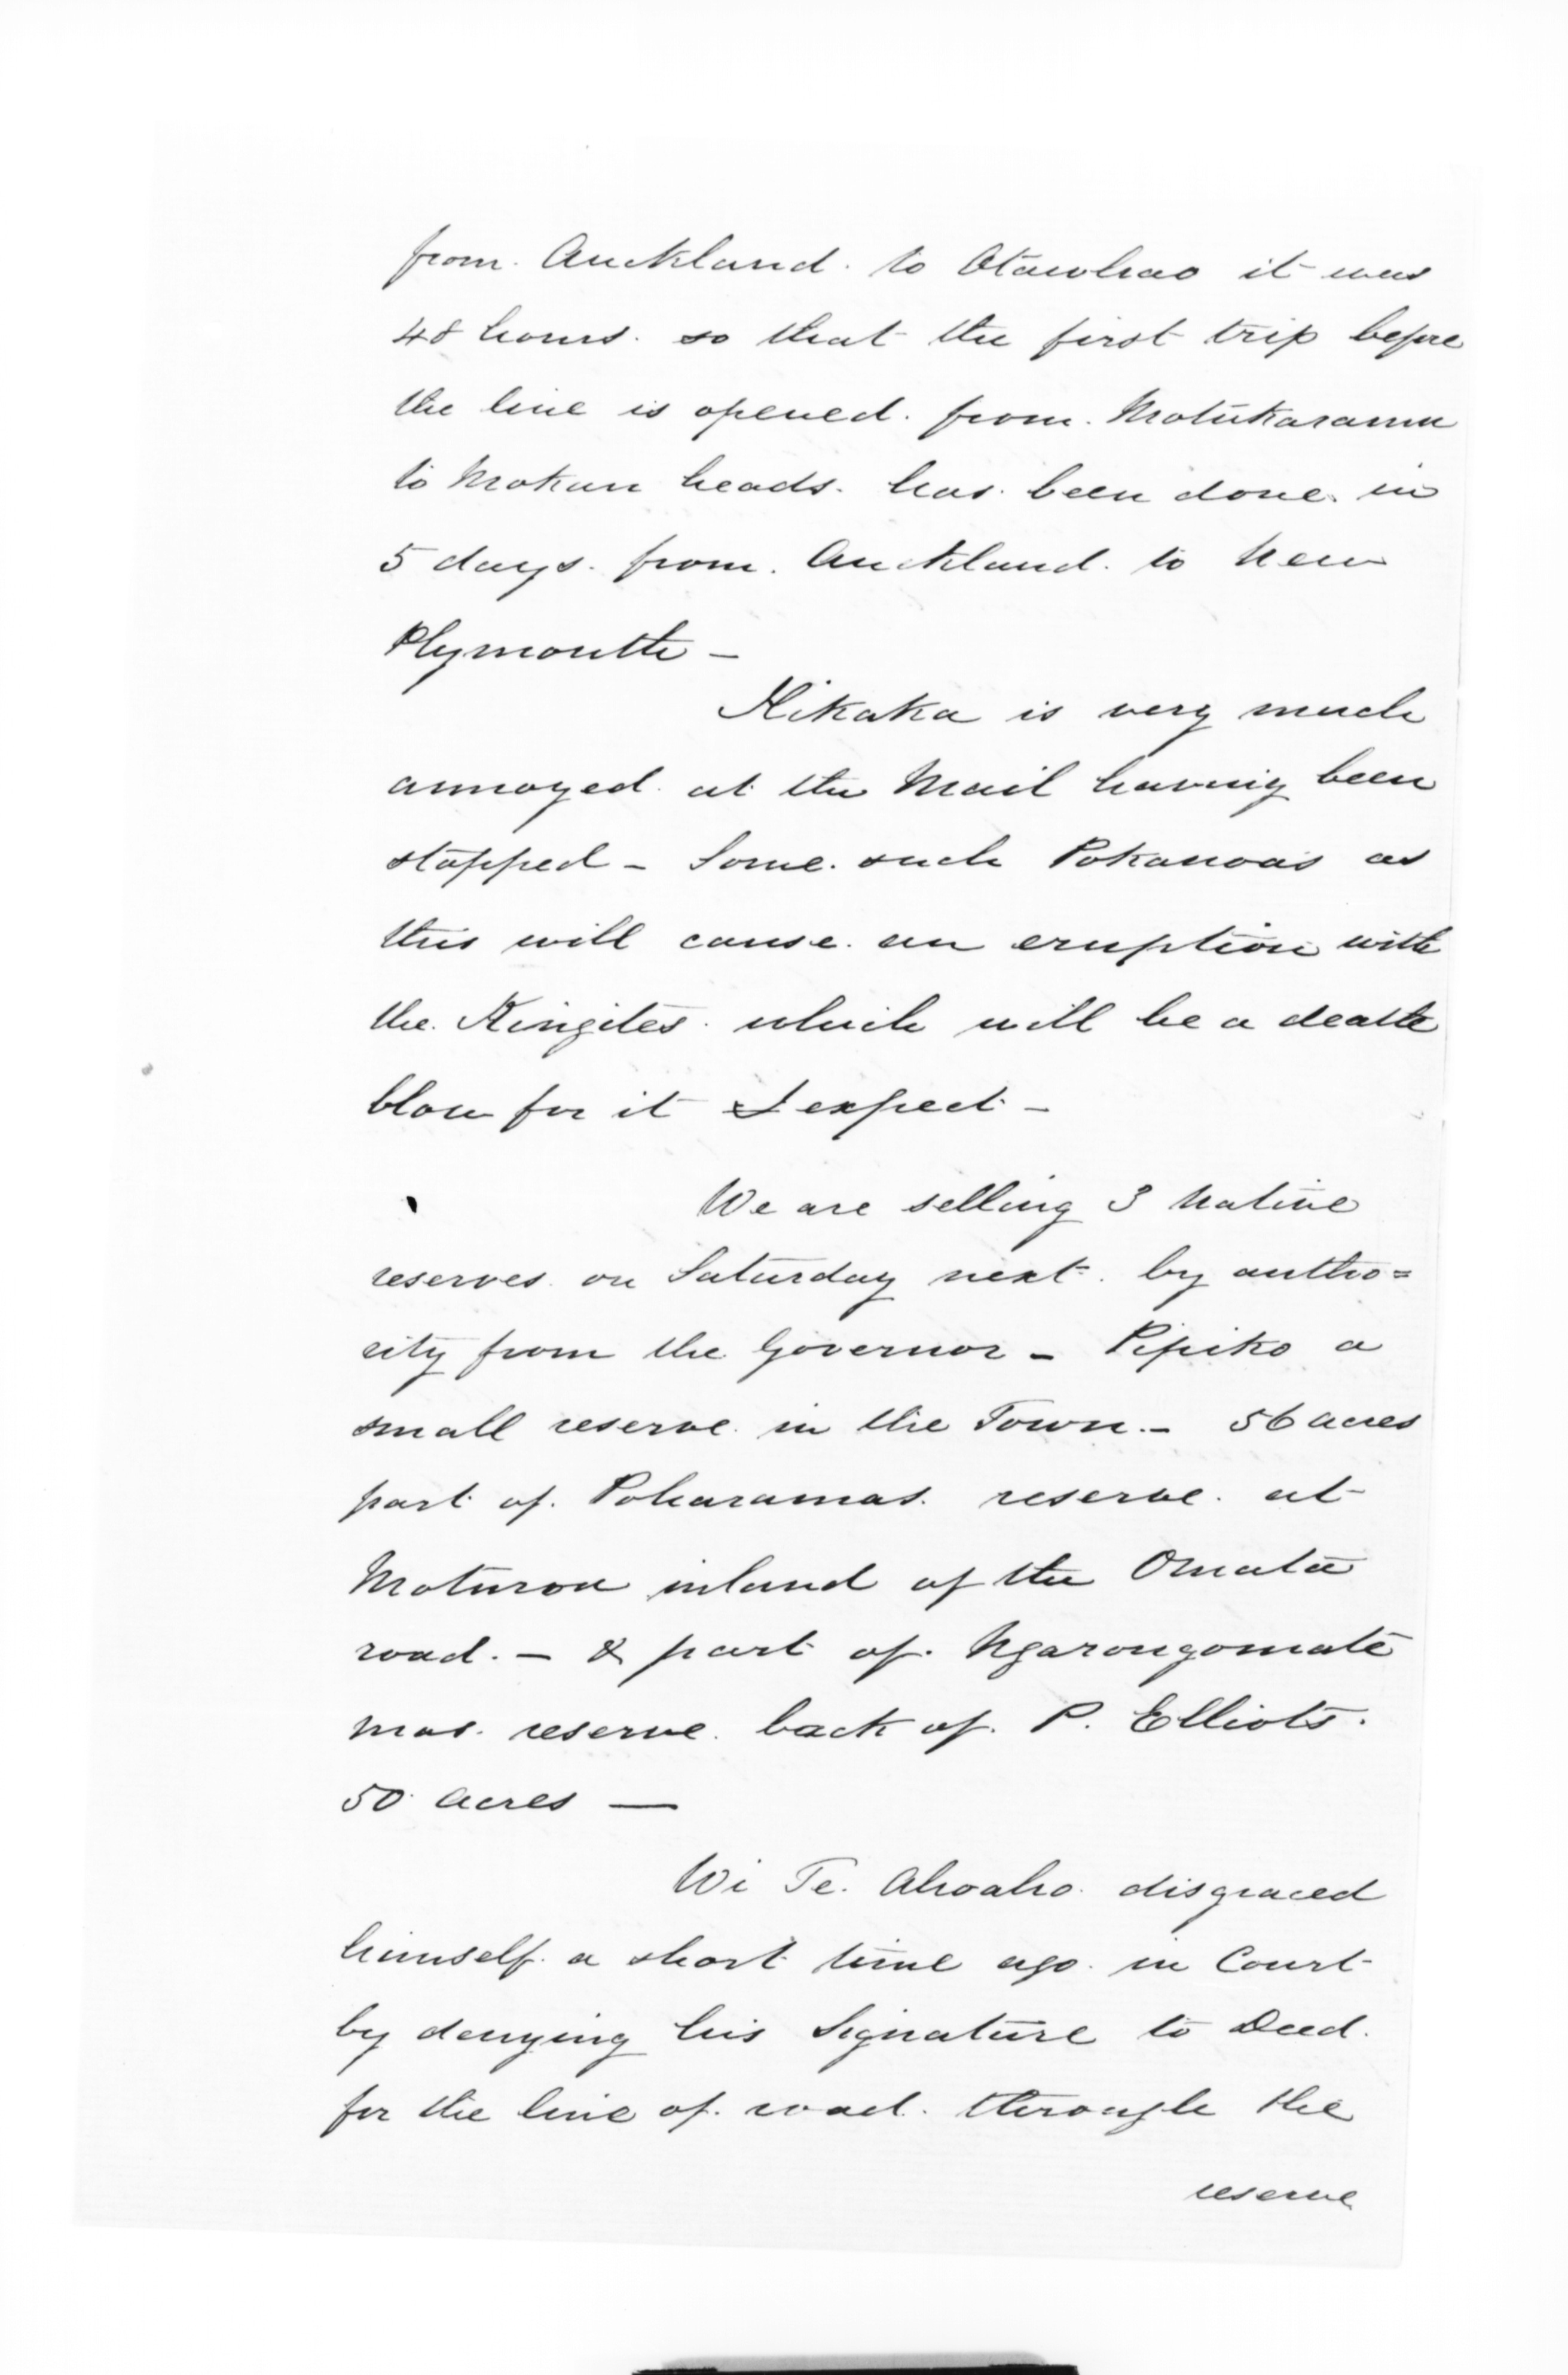 from Auckland to Otawhao it was
48 hours. so that the first trip before
the line is opened. from. Motukaramu
to Mokau heads. has been done in
5 days. from. Auckland. to New
Plymouth –
Hikaka is very much
annoyed at the Mail having been
stopped – Some such Pokanoas as
this will cause an eruption with
the Kingites. which will be a death
blow for it I expect –
We are selling 3 Native
reserves on Saturday next. by autho=
rity from the Governor – Pipiko a
small reserve in the Town. – 56 acres
part of. Poharamas. reserve. at
Moturoa inland of the Omata
road. – & part of. Ngarongomate
mas. reserve. back of. P. Elliots.
50 acres —
Wi Te. Ahoaho disgraced
himself. a short time ago. in Court
by denying his Signature to Deed.
for the line of. road. through the
reserve